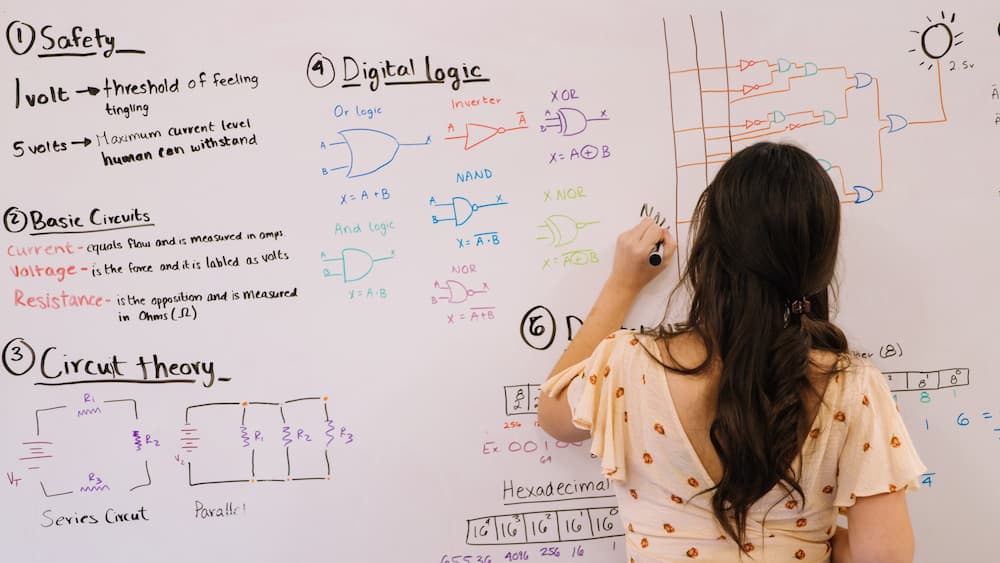 ① Safety
1 volt → threshold of feeling
tingling
5 volts → Maximum current level
human can withstand
② Basic Circuits
Current - equals flow and is measured in amps
Voltage - is the force and it is labled as volts
Resistance - is the opposition and is measured
in Ohms (Ω)
③ Circuit theory
R1
R2
R3
VT
Series Circut
R1
R2
R3
Parallel
④ Digital logic
Or logic
A
B
X
X = A + B
Inverter
A
A̅
XOR
A
B
X
X = A ⊕ B
NAND
A
B
X
X = A̅ ̅·̅ ̅B̅
X NOR
X = A̅ ̅⊕̅ ̅B̅
And logic
A
X
X = A · B
NOR
A
B
X
X = A̅ ̅+̅ ̅B̅
2.5v
⑥
(8)
8¹
8⁰
8
1
1
6 =
4
256
Ex: 001
64
Hexadecimal
16⁴ 16³ 16² 16¹ 16⁰
65536 4096 256 16 1